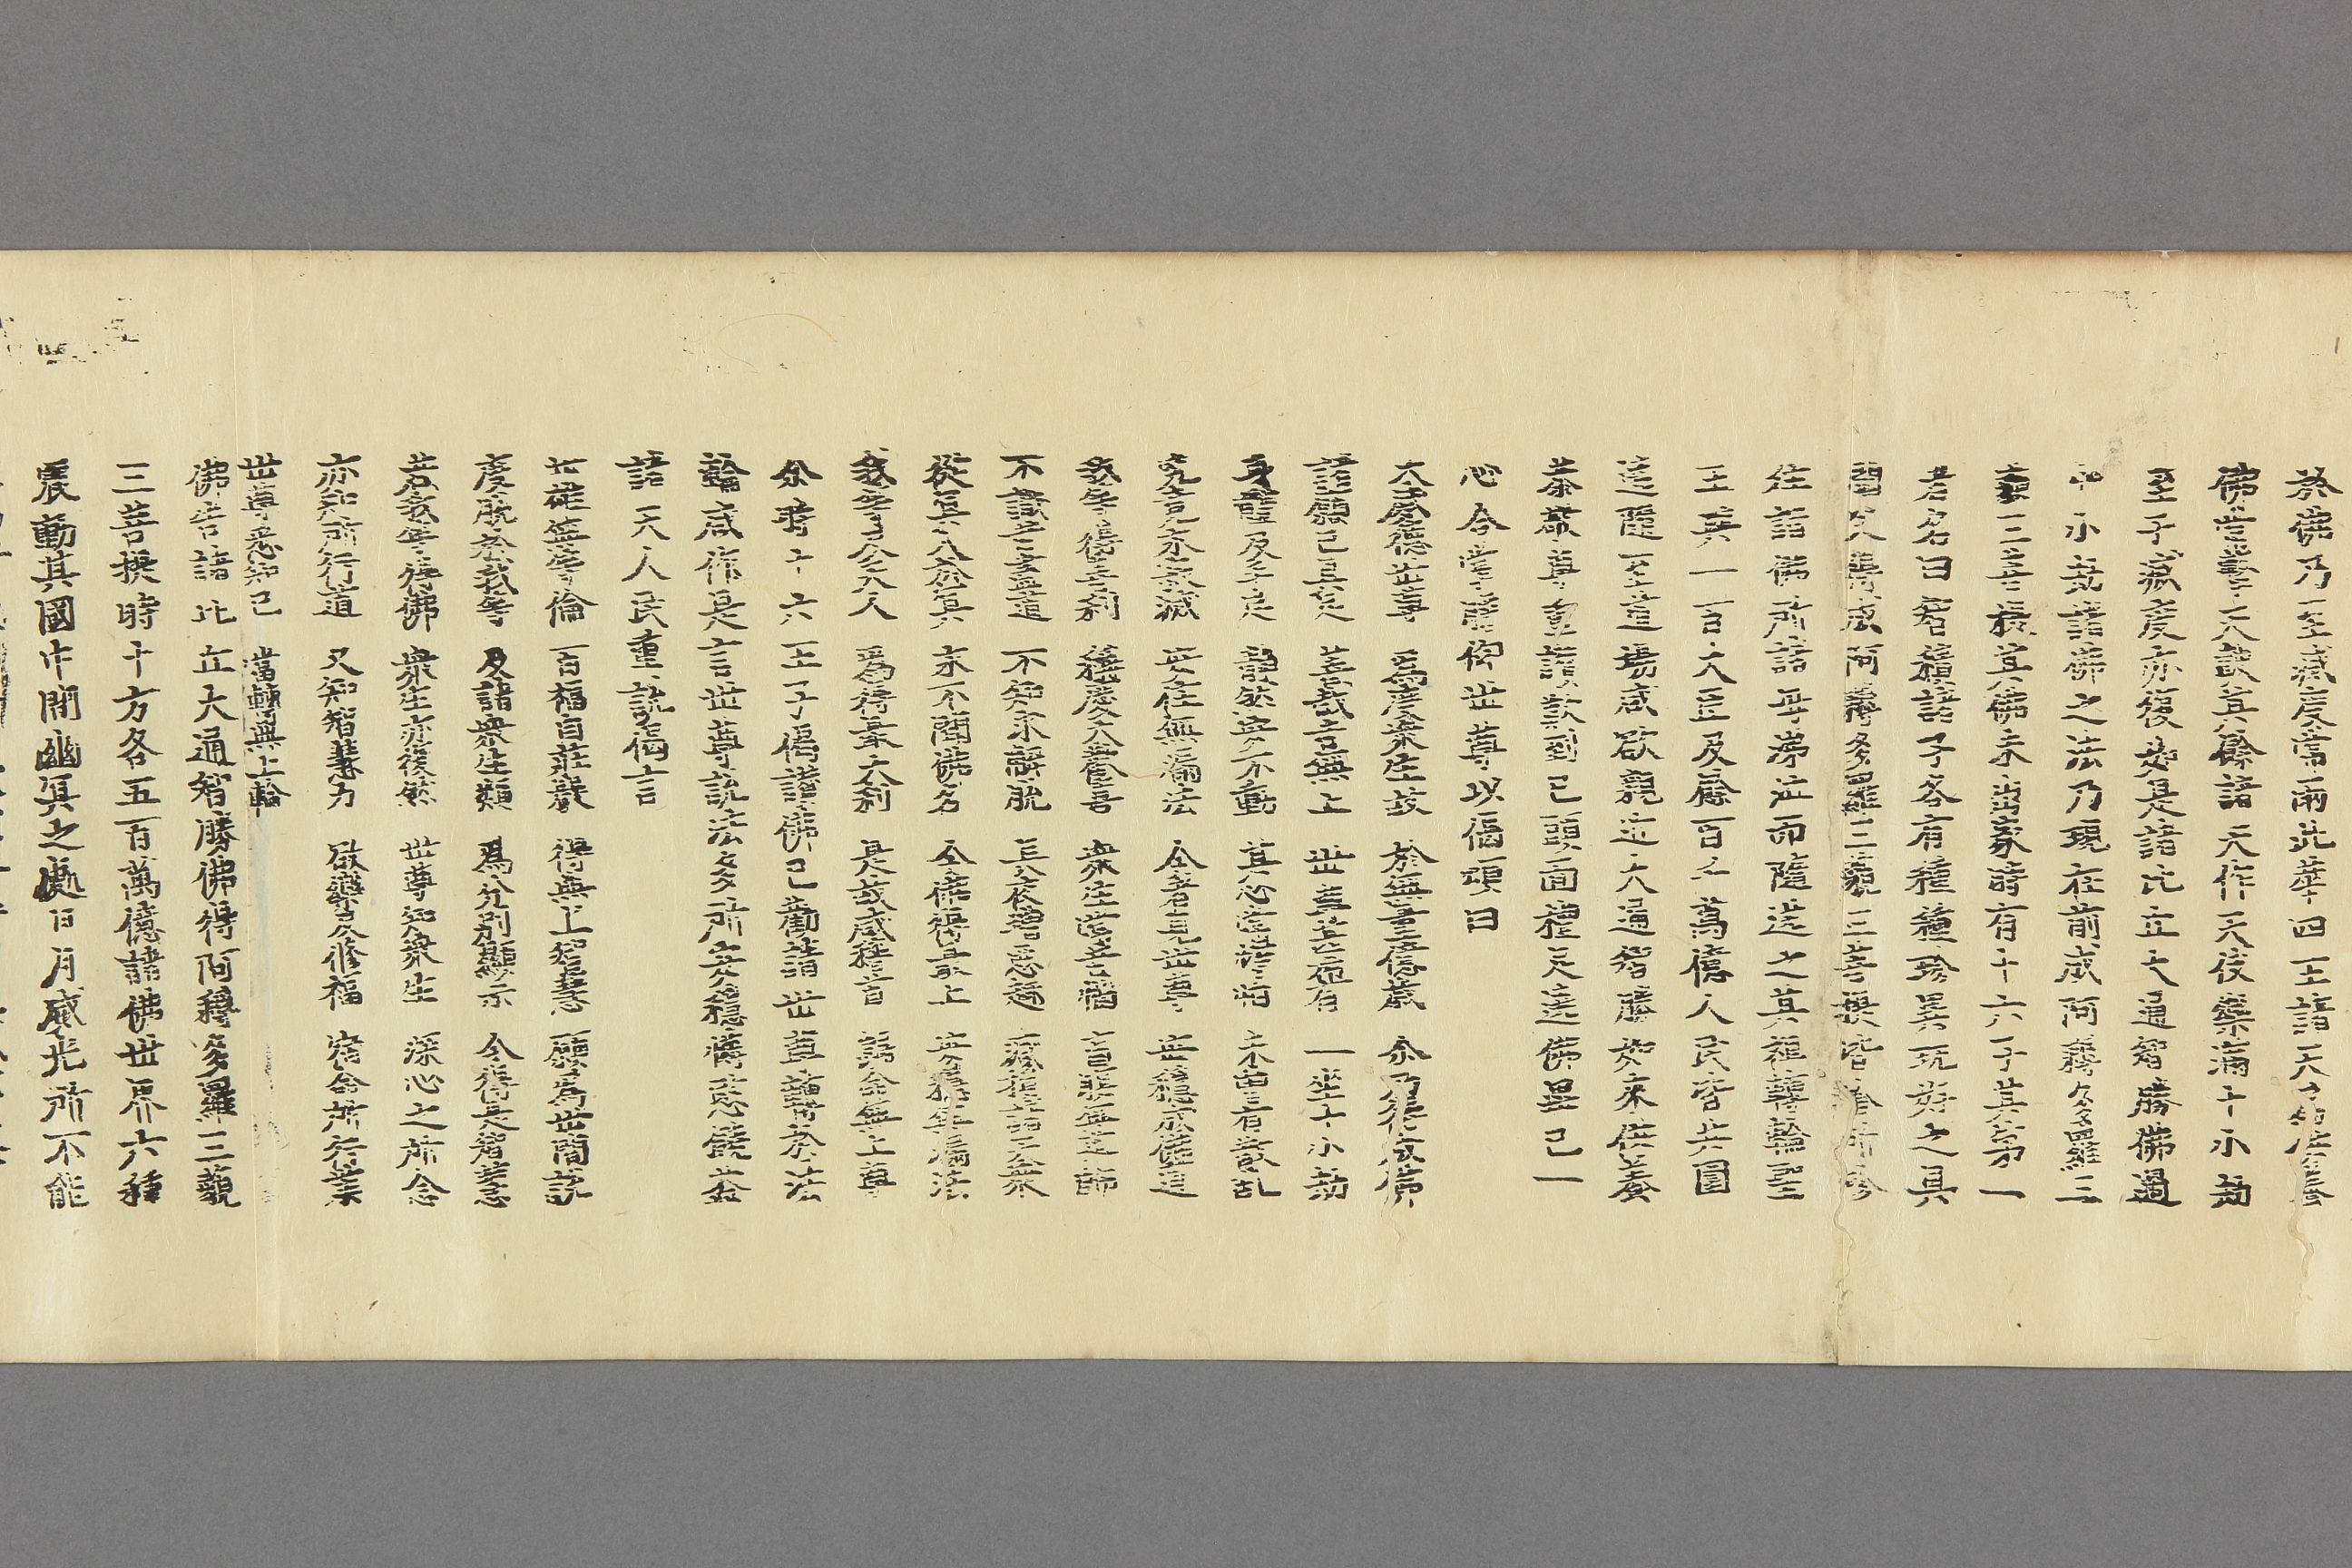 於佛乃至滅度常雨此華四王諸天為供養
佛常擊天鼓其餘諸天作天伎樂滿十小劫
至于滅度亦復如是諸比丘大通智勝佛過
十小劫諸佛之法乃現在前成阿耨多羅三
藐三菩提其佛未出家時有十六子其第一
者名曰智積諸子各有種種珍異玩好之具
聞父得成阿耨多羅三藐三菩提皆捨所珍
往詣佛所諸母涕泣而隨送之其祖轉輪聖
王與一百大臣及餘百千萬億人民皆共圍
遶隨至道場咸欲親近大通智勝如來供養
恭敬尊重讃歎到已頭面禮足遶佛畢已一
心合掌瞻仰世尊以偈頌曰
大威德世尊 為度衆生故 於無量億歲 尒乃得成佛
諸願已具足 善哉吉無上 世尊甚希有 一坐十小劫
身體及手足 靜然安不動 其心常憺怕 未曾有散亂
究竟永寂滅 安住無漏法 今者見世尊 安穩成佛道
我等得善利 稱慶大歡喜 衆生常苦惱 盲瞑無導師
不識苦盡道 不知求解脱 長夜增惡趣 減損諸天衆
從冥入於冥 永不聞佛名 今佛得最上 安穩無漏法
我等及天人 為得最大利 是故咸稽首 歸命無上尊
尒時十六王子偈讃佛已勸請世尊轉於法
輪咸作是言世尊説法多所安穩憐愍饒益
諸天人民重説偈言
世雄無等倫 百福自莊嚴 得無上智慧 願為世間説
度脱於我等 及諸衆生類 為分別顯示 令得是智慧
若我等得佛 衆生亦復然 世尊知衆生 深心之所念
亦知所行道 又知智慧力 欲樂及修福 宿命所行業
世尊悉知已 當轉無上輪
佛告諸比丘大通智勝佛得阿耨多羅三藐
三菩提時十方各五百萬億諸佛世界六種
震動其國中間幽冥之處日月威光所不能